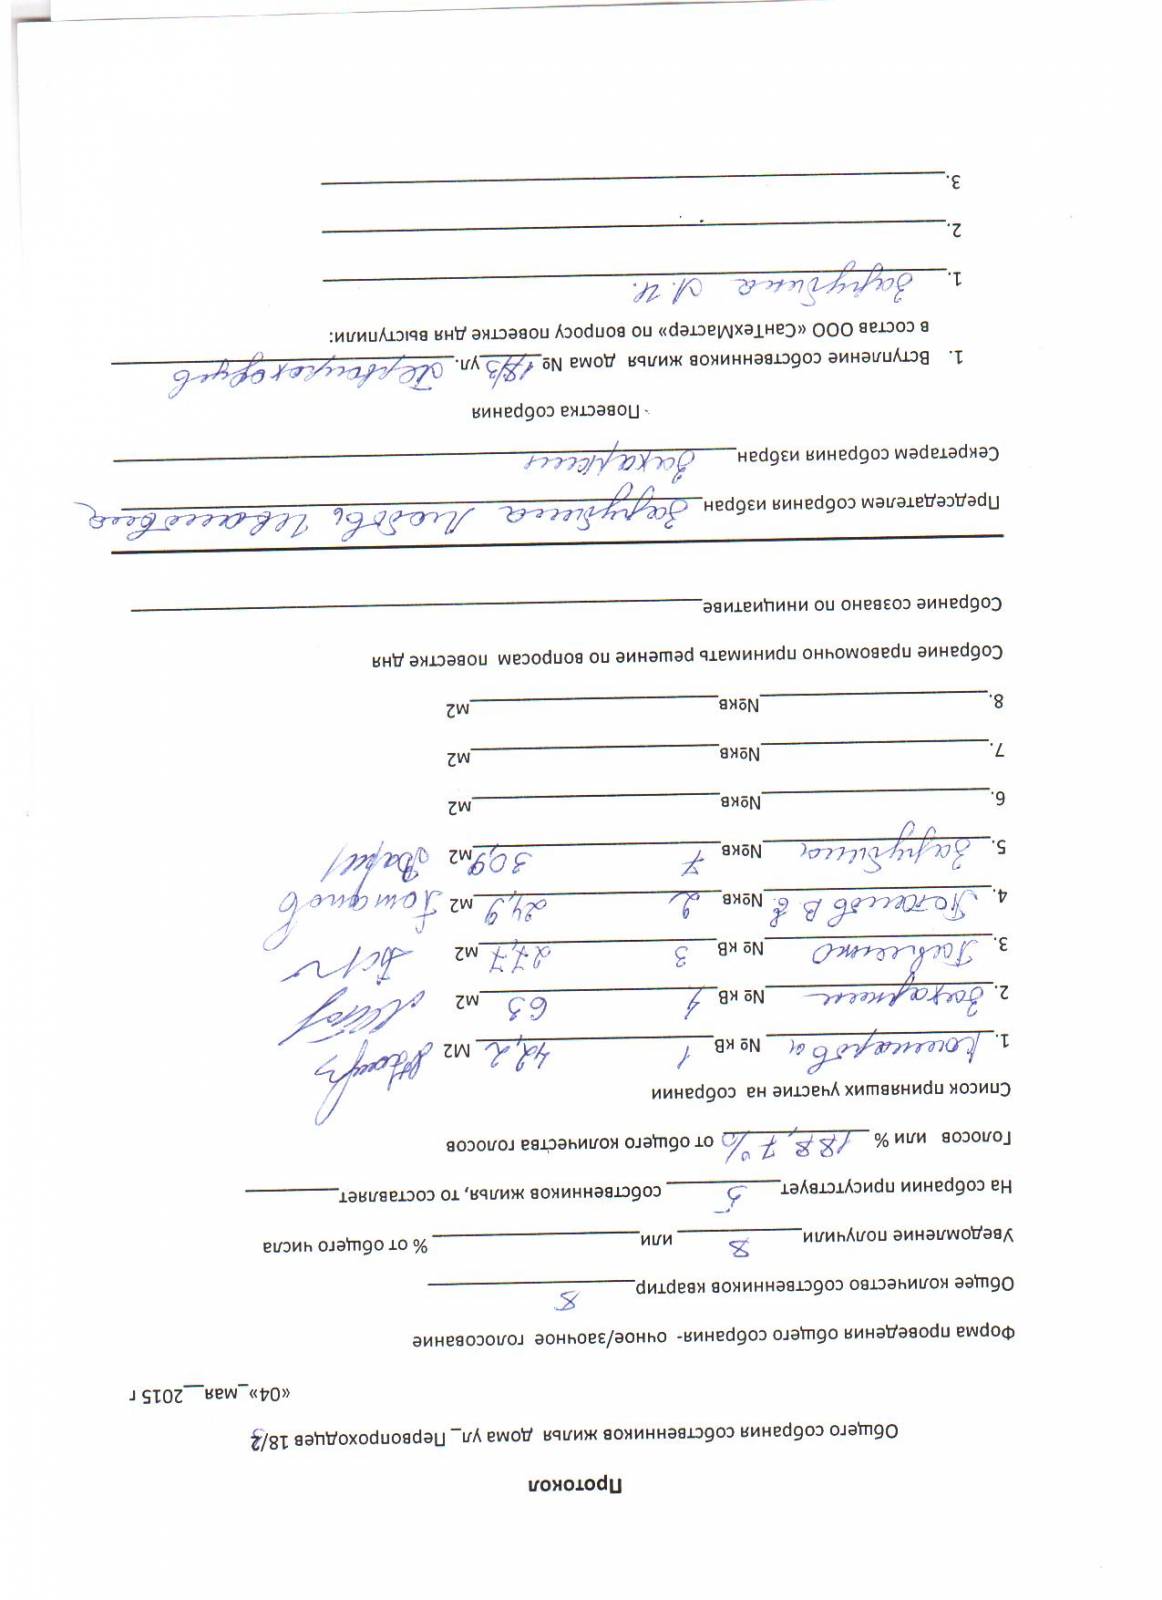 Протокол
Общего собрания собственников жилья дома ул_ Первопроходцев 18/3
«04»_мая__2015 г
Форма проведения общего собрания- очное/заочное голосование
Общее количество собственников квартир 8
Уведомление получили 8 или % от общего числа
На собрании присутствует 5 собственников жилья, то составляет
Голосов или % 188,7% от общего количества голосов
Список принявших участие на собрании
1. № кв 1 42,2 М2
2. Захаркин № кв 4 63 м2
3. № кв 3 27,7 м2
4. Потапов В.Е. №кв 2 24,9 м2 Потапов
5. Зарубина №кв 7 30,9 м2
6. №кв м2
7. №кв м2
8. №кв м2
Собрание правомочно принимать решение по вопросам повестке дня
Собрание созвано по инициативе
Председателем собрания избран Зарубина Любовь Ивановна
Секретарем собрания избран Захаркин
Повестка собрания
1. Вступление собственников жилья дома № 18/3 ул. Первопроходцев
в состав ООО «СанТехМастер» по вопросу повестке дня выступили:
1. Зарубина Л.И.
2.
3.